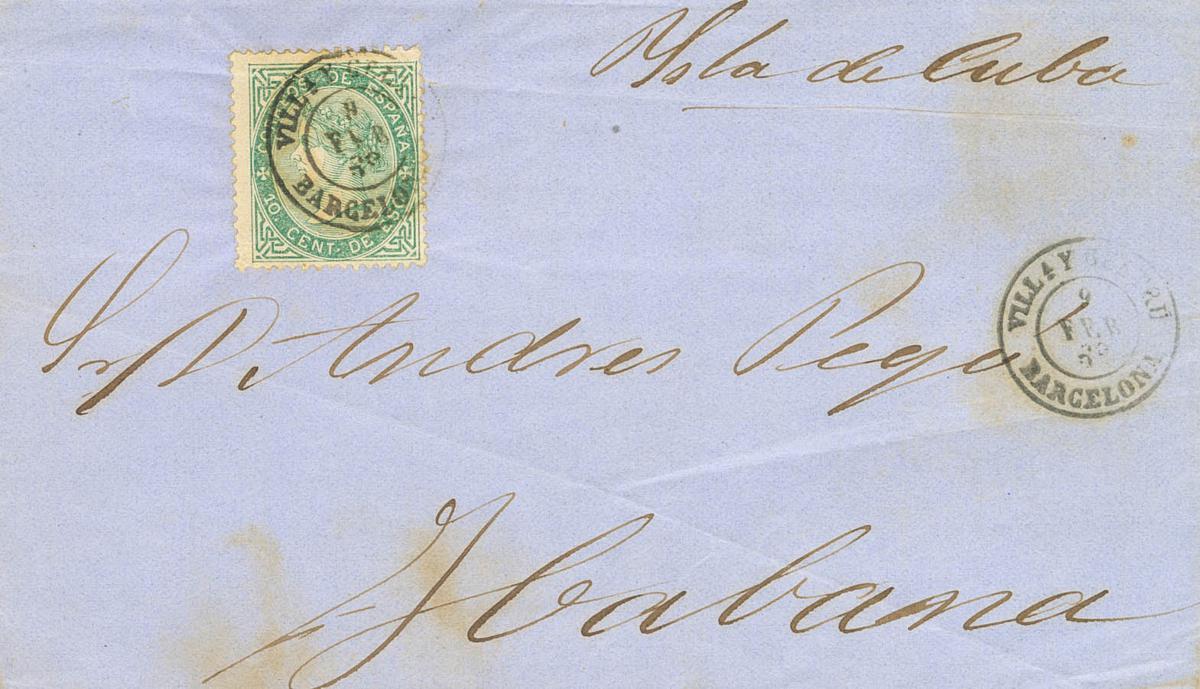 Ysla de Cuba
CORREOS DE ESPAÑA
10. CENT. DE
VILLA Y
FEB
BARCELONA
Sr. D. Andres Pego
VILLA Y GELTRU
9
FEB
BARCELONA
Habana